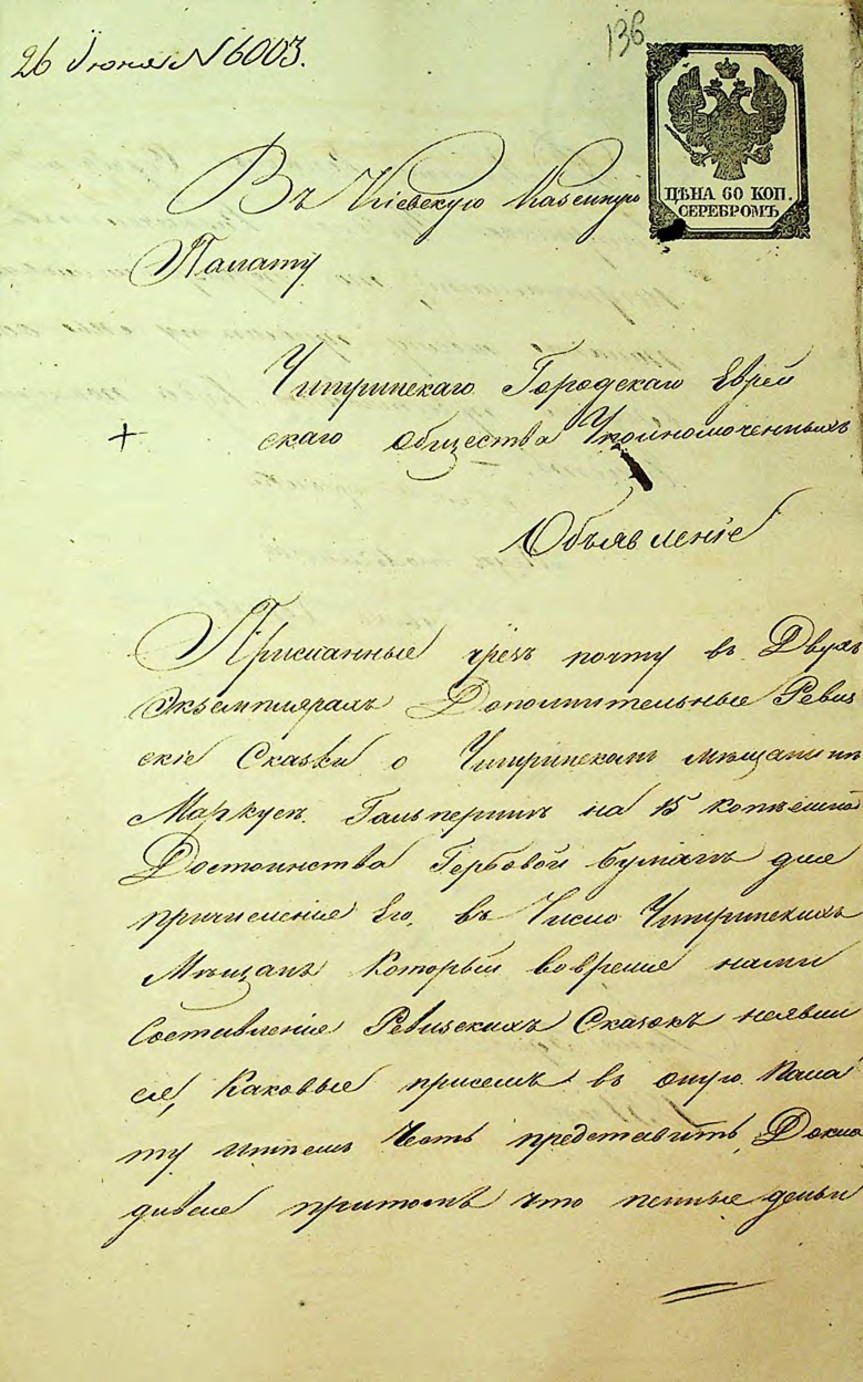 26 Іюня N 6003.
136
ЦѢНА 60 КОП.
СЕРЕБРОМЪ
Въ Кіевскую Казенную
Палату
Чигринскаго Городскаго Еврей
скаго Общества Уполномоченныхъ
Объявленіе
Присланные чрезъ почту въ Двухъ
Экземплярахъ Дополнительные Ревиз
скіе Сказки о Чигринскомъ мѣщанинѣ
Маркусѣ Гальперинѣ на 15 копѣечной
Достоинства Гербовой бумагѣ для
причисленіе Его, въ Число Чигринскихъ
Мѣщанъ Который вовремя нами
Составленіе Ревизскихъ Сказокъ неявил
ся, Каковые присемъ въ оную Пала
ту имѣемъ Честь представить, Докла
дывая притомъ что пенные деньги